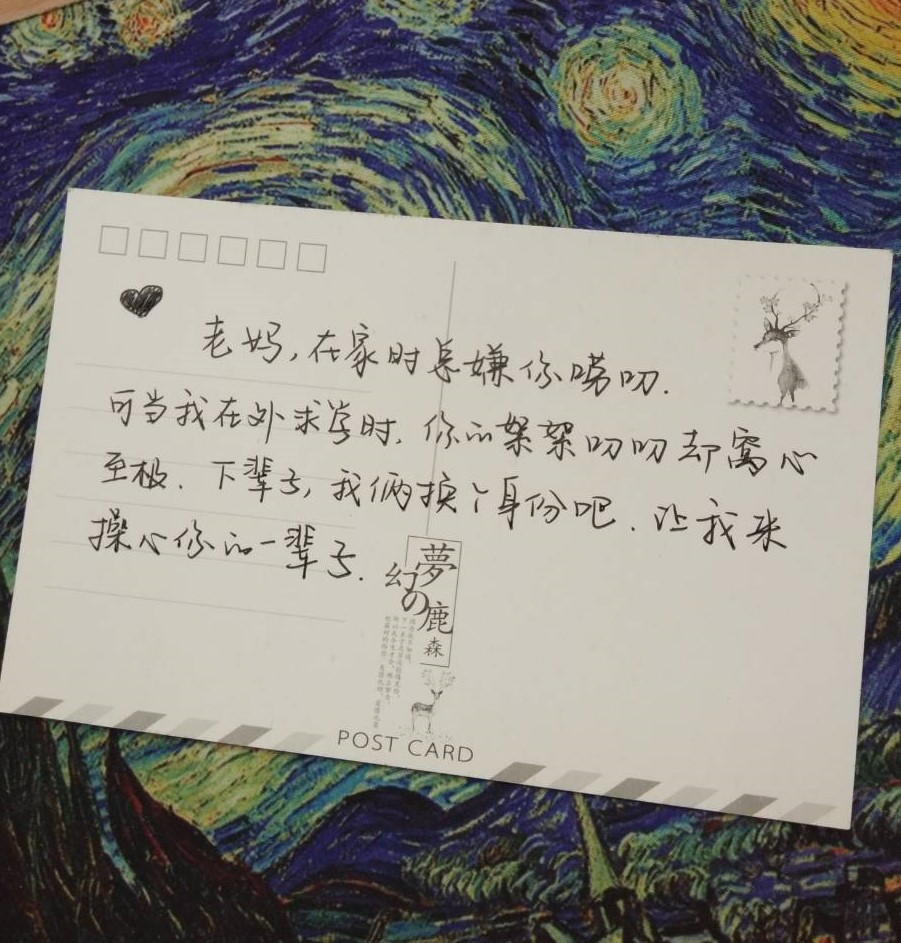 老妈,在家时总嫌你唠叨.
可当我在外求学时,你的絮絮叨叨却窝心
至极.下辈子,我俩换个身份吧.让我来
操心你的一辈子.
夢
幻の鹿
森
POST CARD